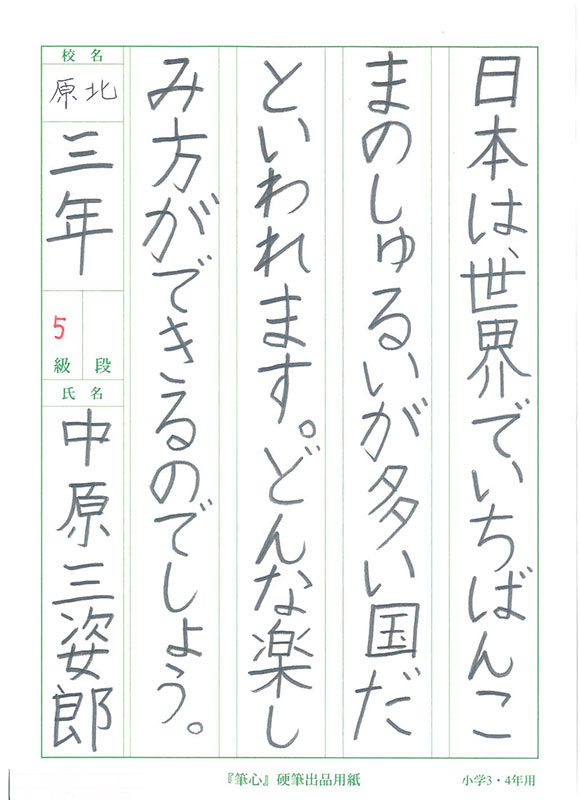 日本は、世界でいちばんこ
まのしゅるいが多い国だ
といわれます。どんな楽し
み方ができるのでしょう。
校名
原北
三年
5
級 段
氏名
中原三姿郎
『筆心』硬筆出品用紙
小学3・4年用